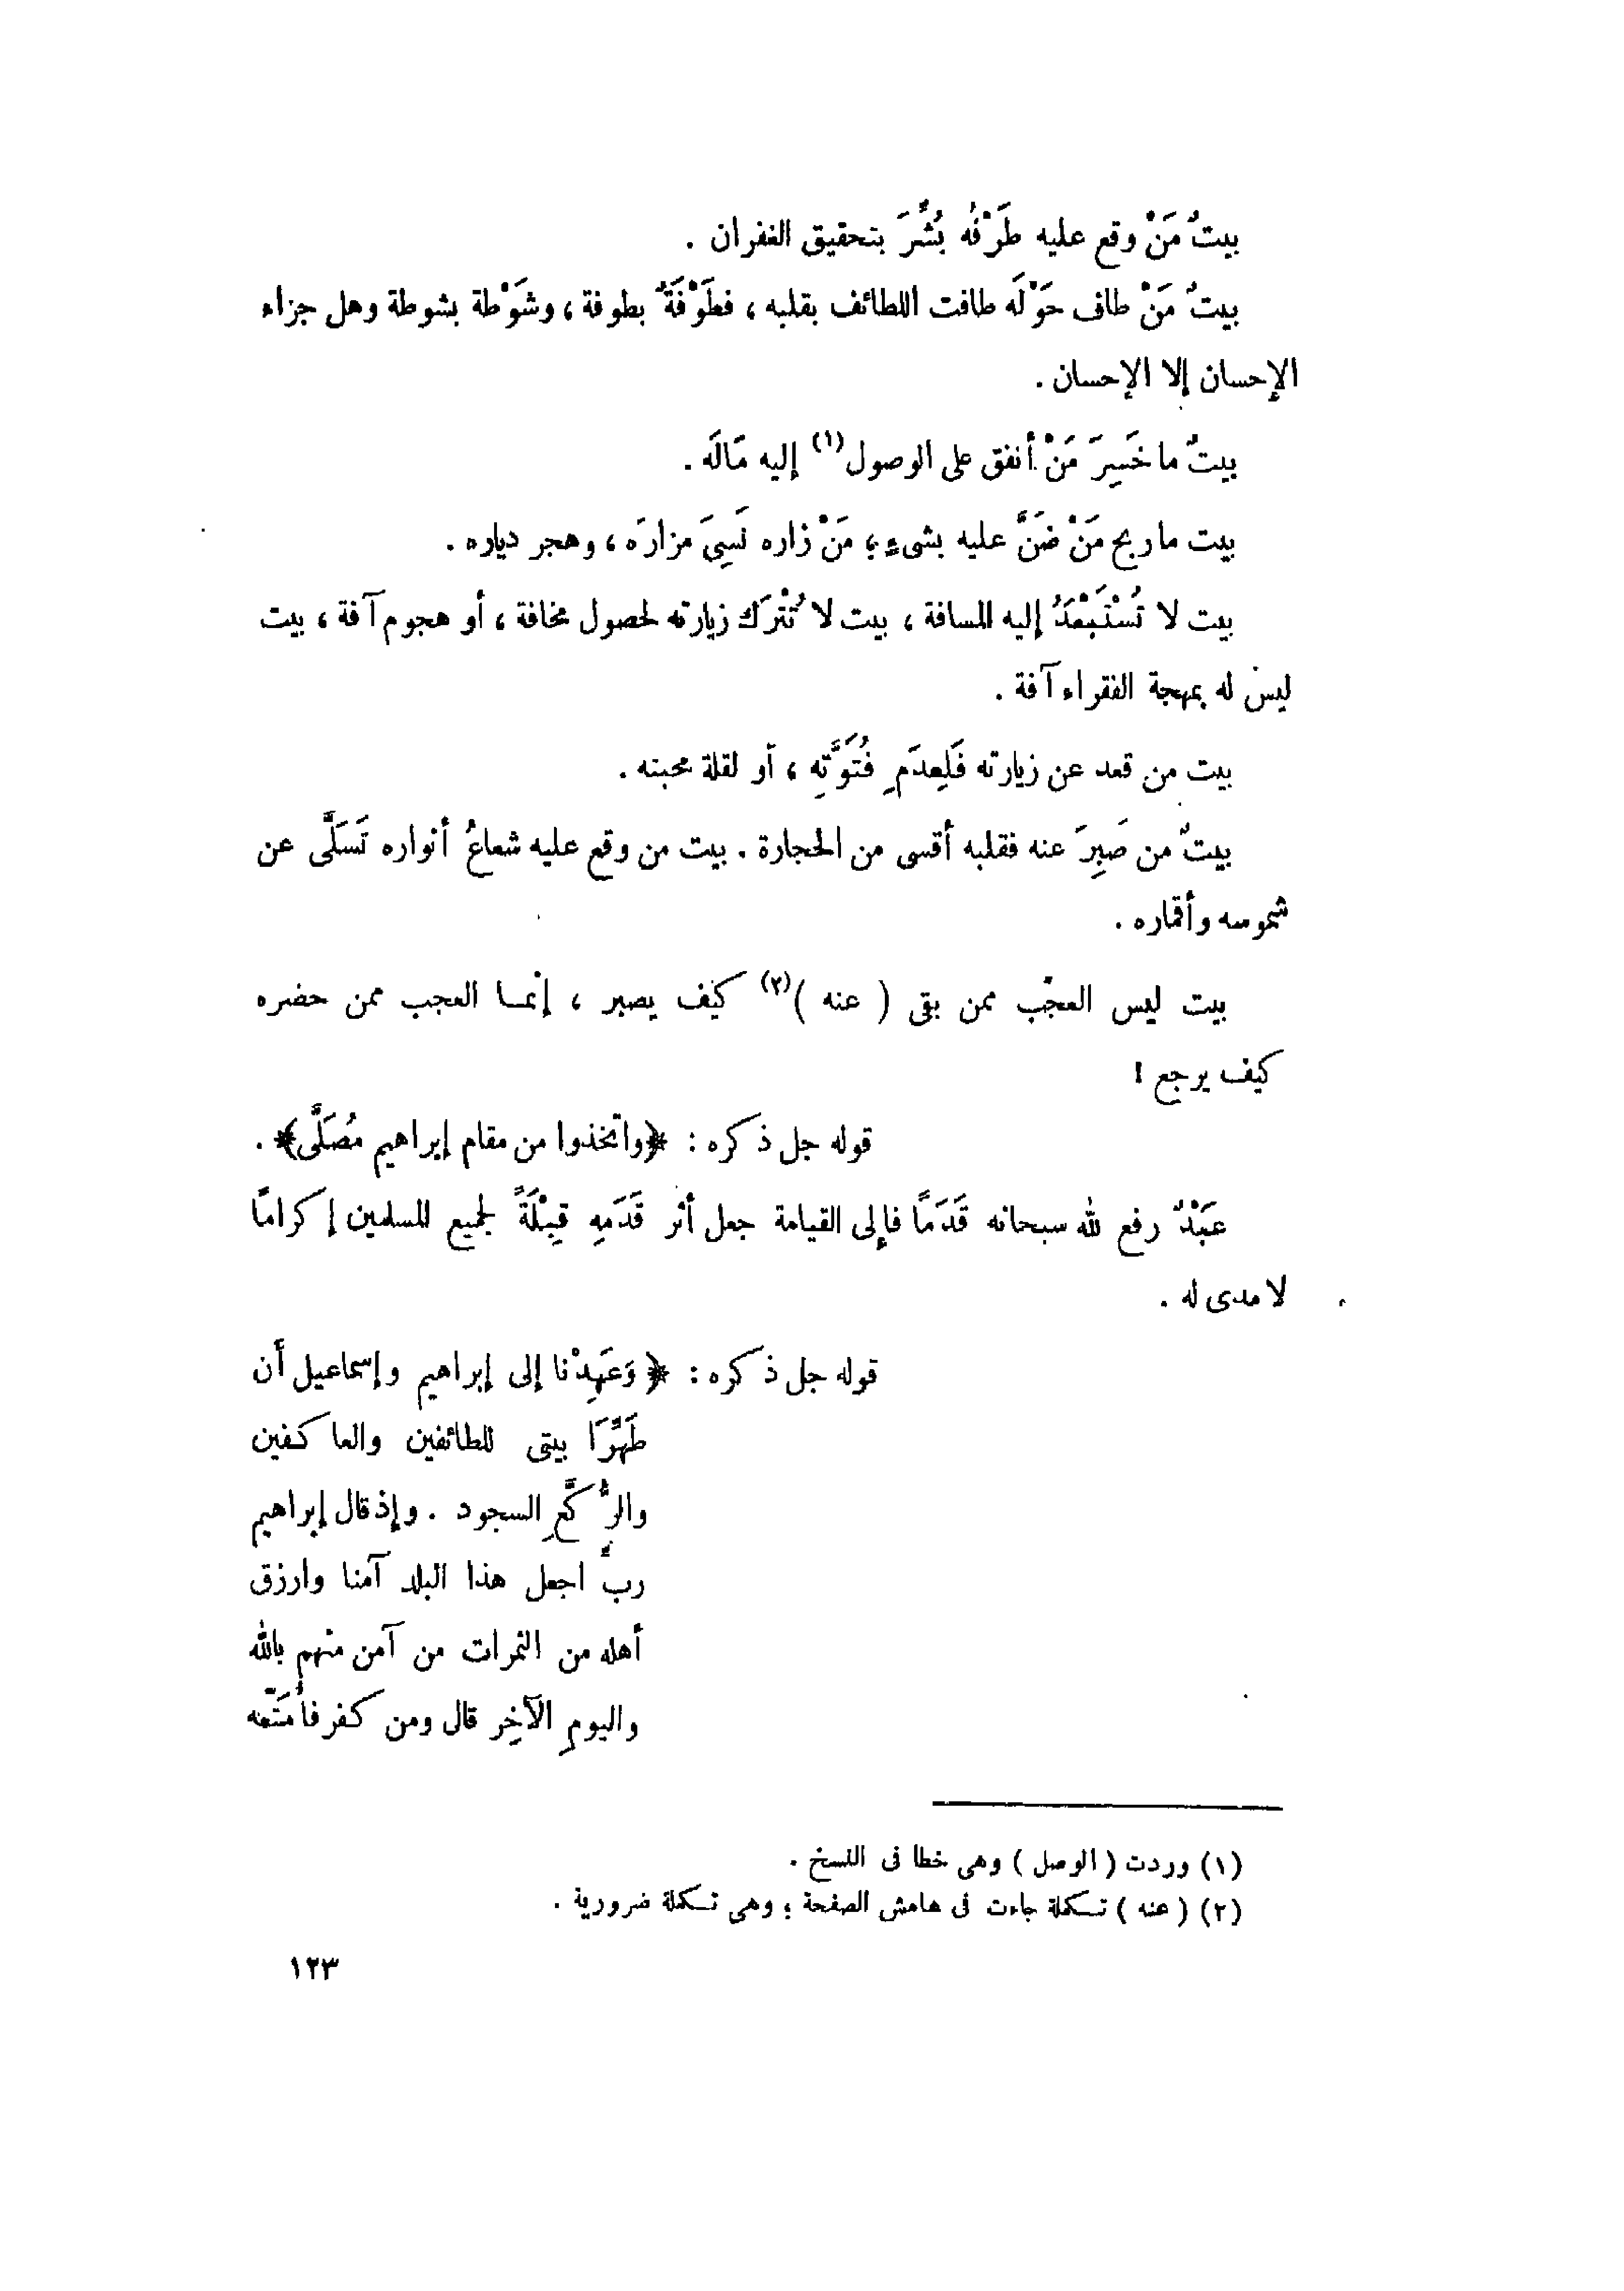 بيتٌ مَنْ وقع عليه طَرْفُه بُشِّرَ بتحقيق الغفران .
بيتٌ مَنْ طاف حَوْلَه طافت اللطائف بقلبه ، فطَوْفَةٌ بطوفة ، وشَوْطة بشوطة وهل جزاء
الإحسان إلا الإحسان .
بيتٌ ما خَسِرَ مَنْ أنفق على الوصول (١) إليه مَالَه .
بيت ما ربح مَنْ ضَنَّ عليه بشىءٍ ؛ مَنْ زاره نَسِىَ مزارَه ، وهجر دياره .
بيت لا تُسْتَبْعَدُ إليه المسافة ، بيت لا تُتْرَك زيارته لحصول مخافة ، أو هجوم آفة ، بيت
ليس له بمهجة الفقراء آفة .
بيت من قعد عن زيارته فَلِعدَمِ فُتُوَّتِه ، أو لقلة محبته .
بيتٌ من صَبِرَ عنه فقلبه أقسى من الحجارة . بيت من وقع عليه شعاعُ أنواره تَسَلَّى عن
شموسه وأقماره .
بيت ليس العجَب ممن بقى ( عنه ) (٢) كيف يصبر ، إنما العجب ممن حضره
كيف يرجع !
قوله جل ذكره : ﴿واتخذوا من مقام إبراهيم مُصَلَّى﴾ .
عَبْدٌ رفع لله سبحانه قَدَمًا فإلى القيامة جعل أثر قَدَمِه قِبْلَةً لجميع المسلمين إكرامًا
لا مدى له .
قوله جل ذكره : ﴿ وَعَهِدْنا إلى إبراهيم وإسماعيل أن
طَهِّرَا بيتى للطائفين والعاكفين
والرُّكَّعِ السجود . وإذ قال إبراهيم
ربِّ اجعل هذا البلد آمنا وارزق
أهله من الثمرات من آمن منهم بالله
واليومِ الآخِر قال ومن كفر فأُمَتِّعه
(١) وردت ( الوصل ) وهى خطا فى النسخ .
(٢) ( عنه ) تسكملة جاءت فى هامش الصفحة ؛ وهى تسكملة ضرورية .
١٢٣